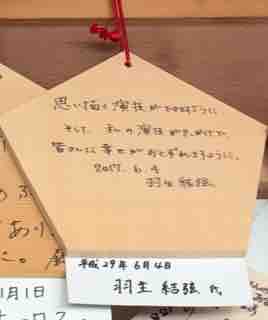 思い描く演技ができますように。
そして、私の演技がきっかけで、
皆さんに幸せがおとずれますように。
2017. 6. 4
羽生結弦
平成29年6月4日
羽生 結弦 氏
あり、
1月1日